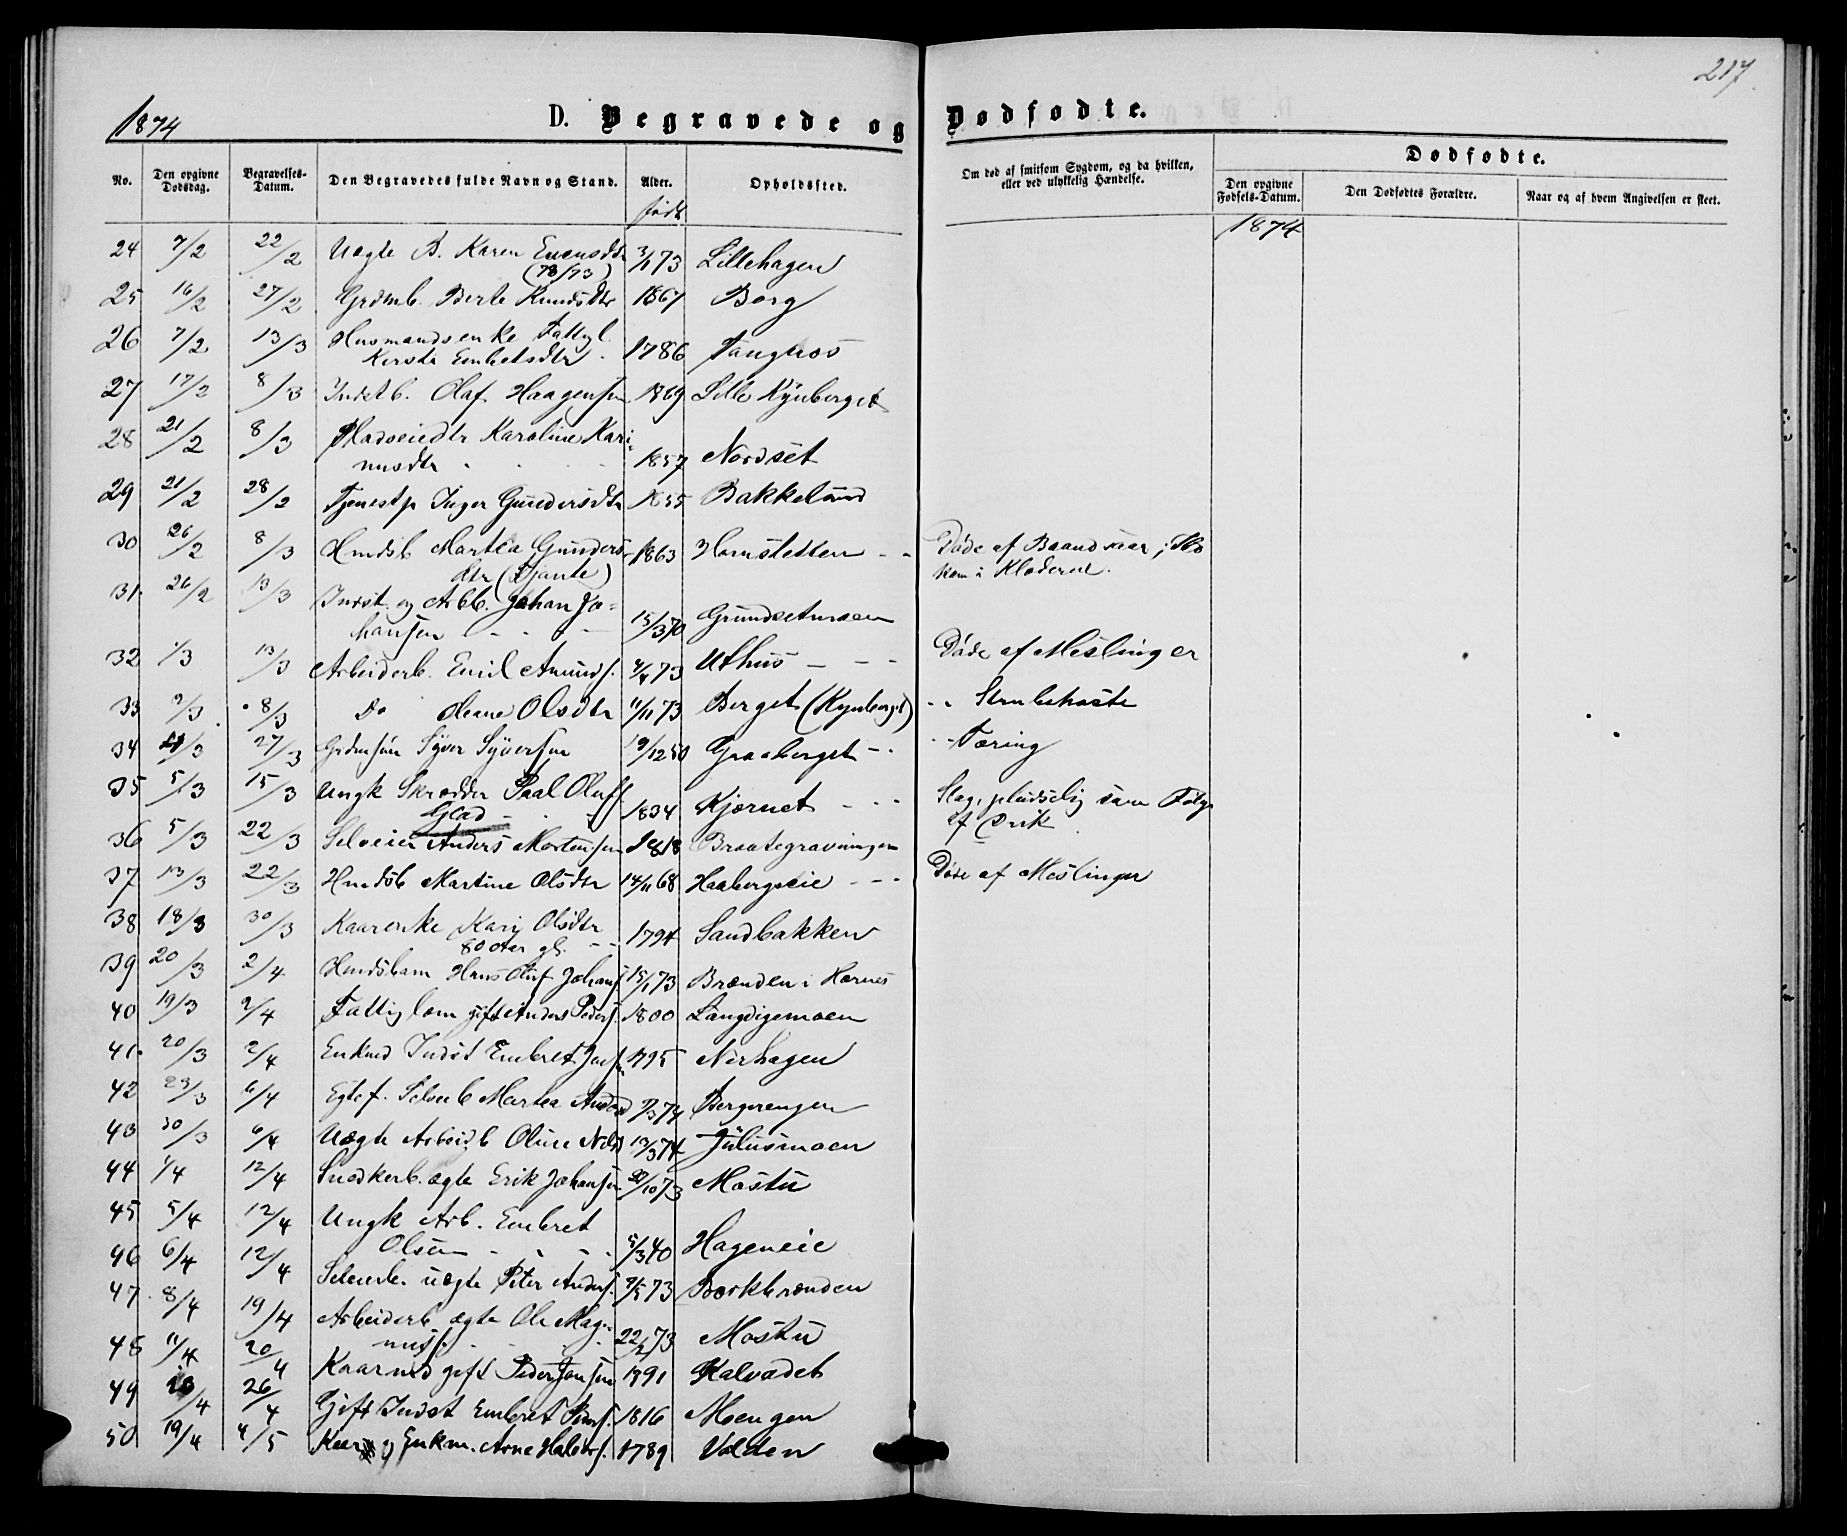 217
1874
D. Begravede og Dødfødte.
No. Den opgivne Dødsdag. Begravelses-Datum. Den Begravedes fulde Navn og Stand. Alder. Opholdssted. Om død af smitsom Sygdom, og da hvilken, eller ved ulykkelig Hændelse. Dødfødte.
Den opgivne Fødsels-Datum. Den Dødfødtes Forældre. Naar og af hvem Angivelsen er skeet.
født
1874
24 7/2 22/2 Uægte B. Karen Evensdtr 3/1 73 Lillehagen
(78/73)
25 16/2 27/2 Grdmb. Berte Knudsdtr 1867 Borg
26 7/2 13/3 Husmandsenke Fattigl.
Kersti Embetsdtr 1786 Tangnos
27 17/2 8/3 Indstb. Olaf Haagensen 1869 Lille Kynberget
28 21/2 8/3 Pladseiedtr Karoline Kari
nusdtr 1857 Nordset
29 21/2 28/2 Tjenestp Inger Gundersdtr 1855 Bakkelund
30 26/2 8/3 Hmdsb Martea Gunders 1863 Hornstetten Døde af Brandsaar;
dtr (Djante) kom i Klæderne.
31 26/2 13/3 Indst. og Arbb. Johan Jo=
hansen 15/3 70 Grundsetmoen
32 1/3 13/3 Arbeiderb. Emil Amunds. 4/4 73 Uthus Døde af Meslinger
33 2/3 8/3 Do Olsdtr 11/11 73 Berget (Kynberget) Strubehoste
34 4/3 27/3 Grdmsøn Syver Syversen 19/12 50 Graaberget Tæring
35 5/3 15/3 Ungk Skrædder Paal Olufs
Glad 1834 Kjernet Slag, pludselig som Følge
af Drik
36 5/3 22/3 Selveier Anders Mortensen 1818 Braategravningen
37 13/3 22/3 Hmdsb Martine Olsdtr 14/11 68 Haabergseie Døde af Meslinger
38 18/3 30/3 Kaarenke Kari Olsdtr
80 Aar gl. 1794 Sandbakken
39 20/3 2/4 Hmdsbarn Hans Oluf Johans 15/1 73 Brænden i Hernes
40 19/3 2/4 Fattiglem gift Anders Peders. 1800 Langdigemoen
41 20/3 2/4 Enkmd Indst Embret 1795 Nerhagen
42 23/3 6/4 Egtef. Selveb Martea Andsd 9/3 74 Bergerengen
43 30/3 6/4 Uægte Arbeidb Oline Nilsd 13/3 74 Julusmoen
44 1/4 12/4 Snedkerb. ægte Erik Johansen 20/10 73 Mostu
45 5/4 12/4 Ungk Arb. Embret
Olsen 5/3 40 Hageneie
46 6/4 12/4 Selveierb uægte Peter Anders. 9/5 73 Borkbrænden
47 8/4 19/4 Arbeiderb ægte Ole Mag=
nus. 22/2 73 Mostu
48 11/4 20/4 Kaarmd gift Peder Jonsen 1791 Kalvadet
49 13/4 26/4 Gift Indst Embret Peders. 1816 Moengen
50 19/4 4/5 Kaar og Enkm. Arne Halvors. 1789 Velden